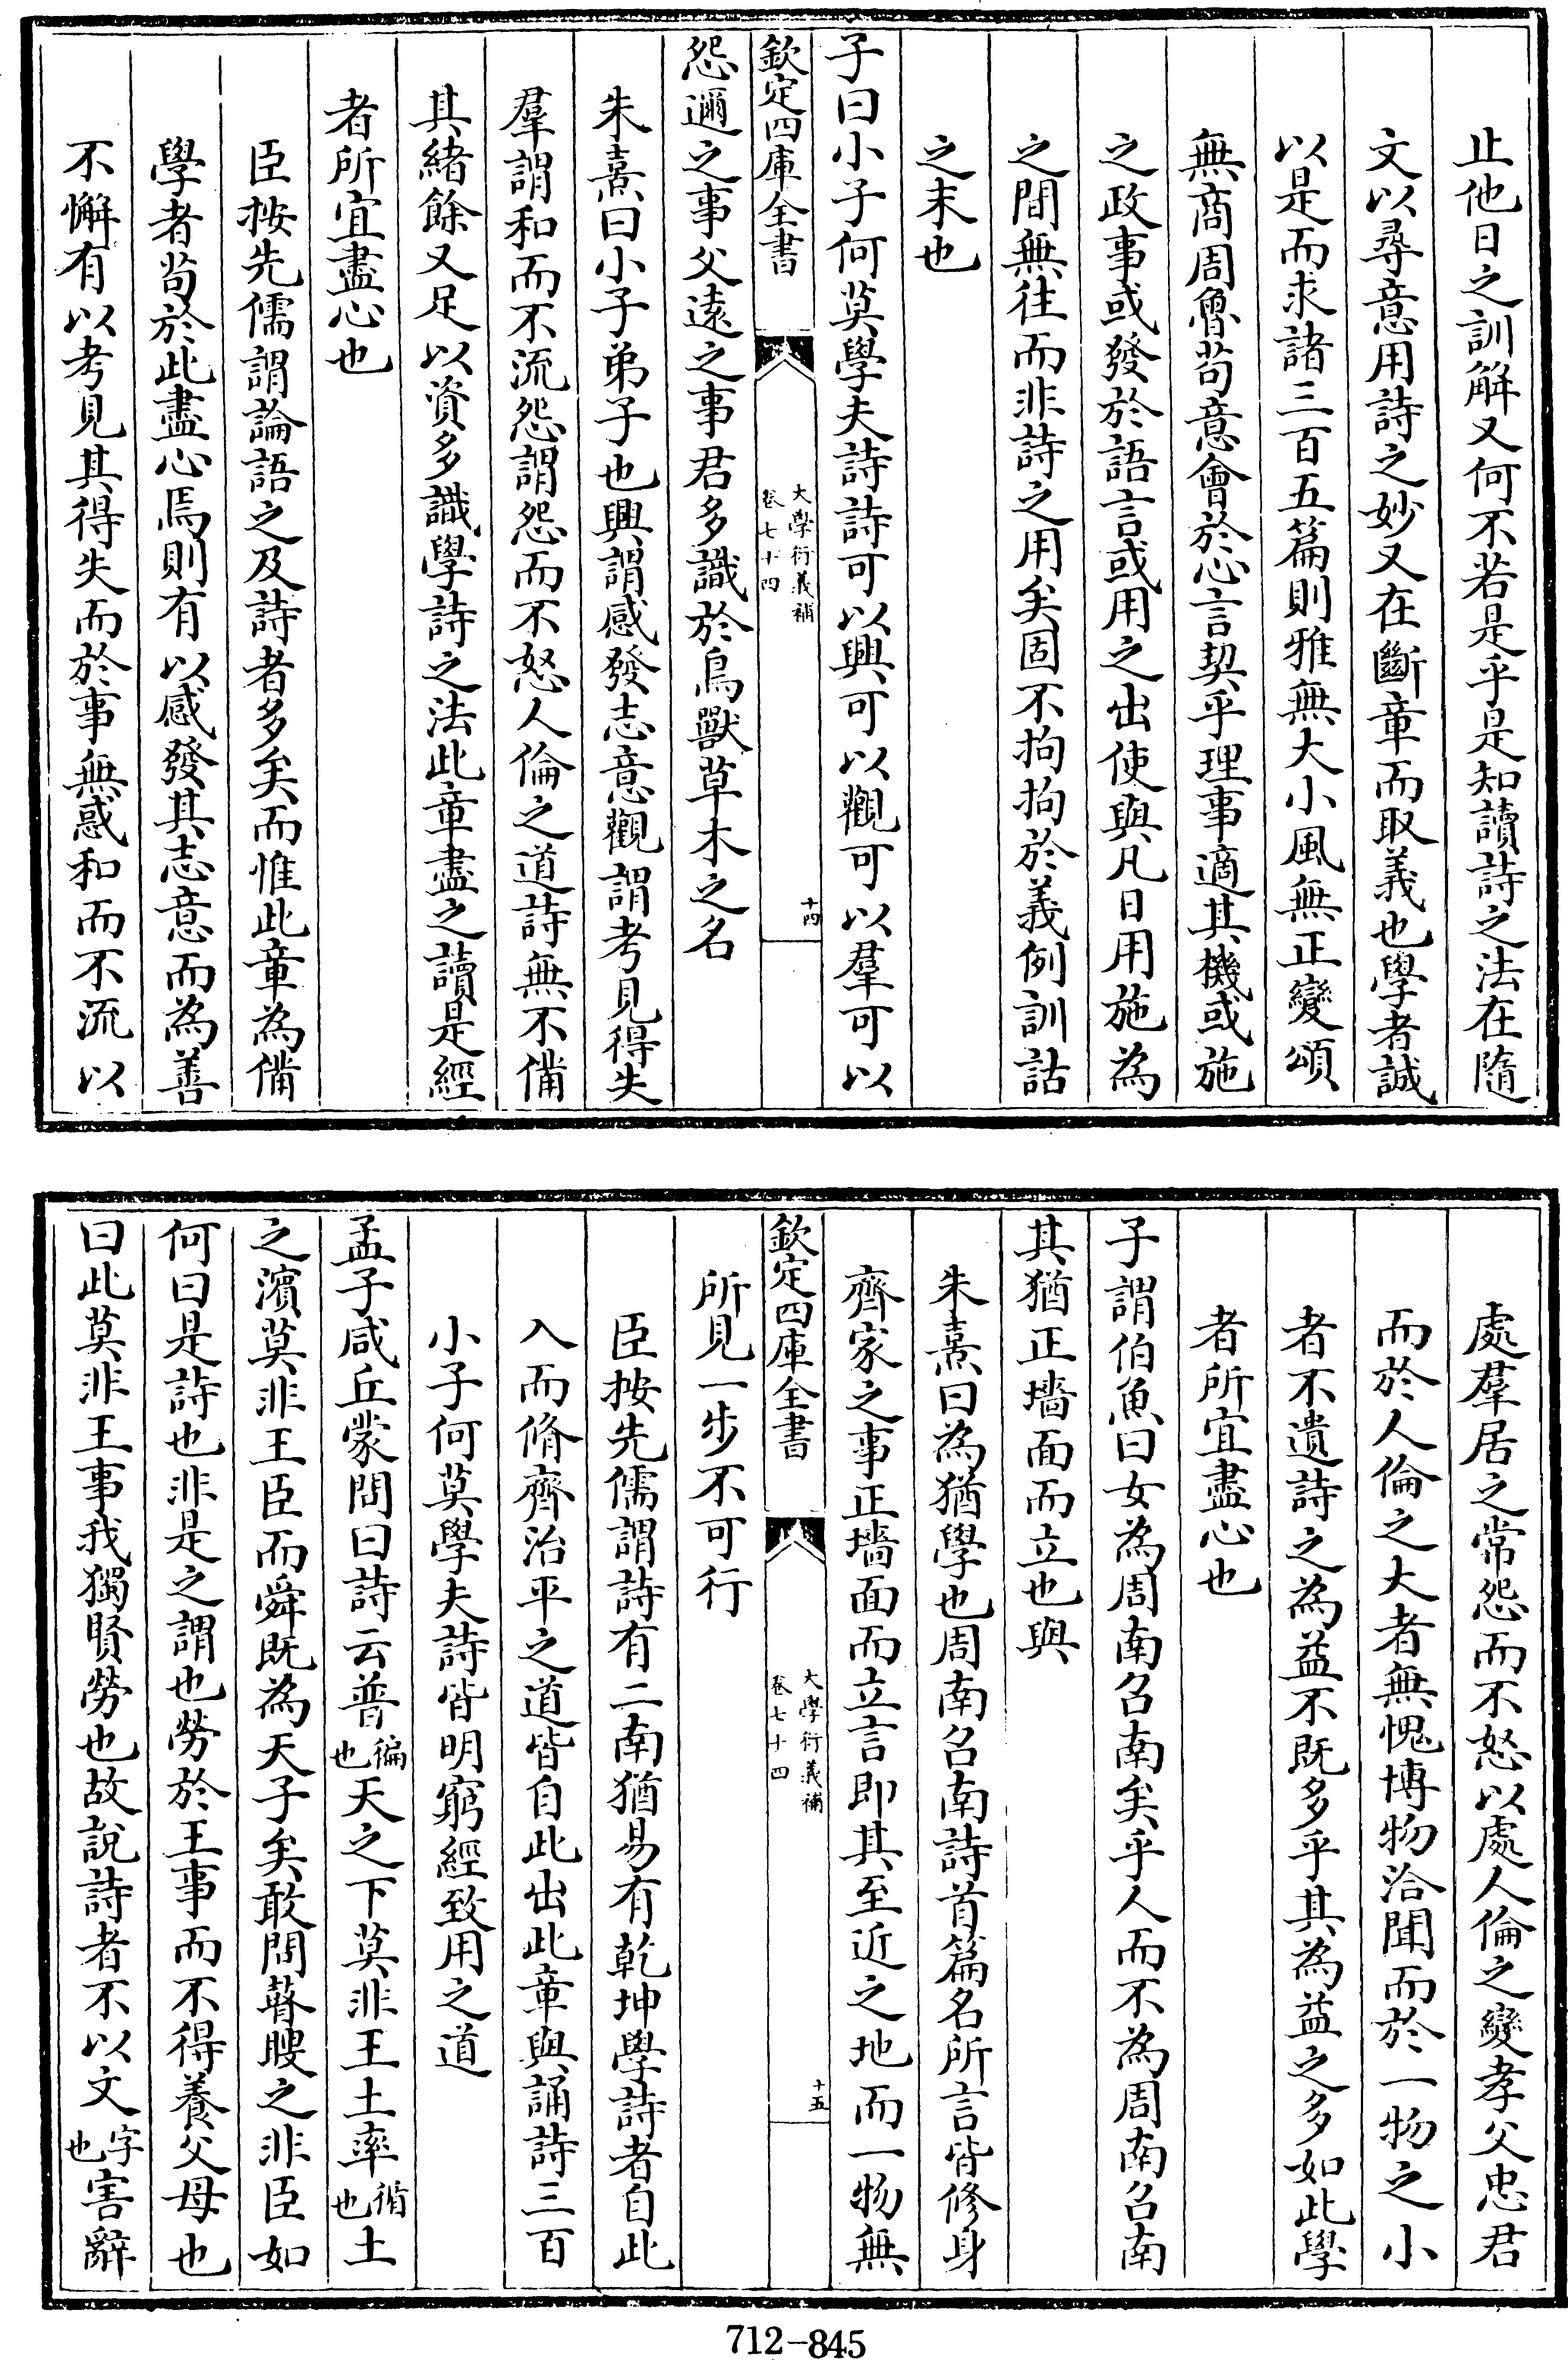 止他日之訓解又何不若是乎是知讀詩之法在隨
文以尋意用詩之妙又在斷章而取義也學者誠
以是而求諸三百五篇則雅無大小風無正變頌
無商周魯苟意會於心言契乎理事適其機或施
之政事或發於語言或用之出使與凡日用施為
之間無往而非詩之用矣固不拘拘於義例訓詁
之末也
子曰小子何莫學夫詩詩可以興可以觀可以羣可以
欽定四庫全書
大學衍義補
卷七十四
十四
怨邇之事父遠之事君多識於鳥獸草木之名
朱熹曰小子弟子也興謂感發志意觀謂考見得失
羣謂和而不流怨謂怨而不怒人倫之道詩無不備
其緒餘又足以資多識學詩之法此章盡之讀是經
者所宜盡心也
臣按先儒謂論語之及詩者多矣而惟此章為備
學者茍於此盡心焉則有以感發其志意而為善
不懈有以考見其得失而於事無惑和而不流以
處羣居之常怨而不怒以處人倫之變孝父忠君
而於人倫之大者無愧博物洽聞而於一物之小
者不遺詩之為益不既多乎其為益之多如此學
者所宜盡心也
子謂伯魚曰女為周南召南矣乎人而不為周南召南
其猶正墻面而立也與
朱熹曰為猶學也周南召南詩首篇名所言皆修身
齊家之事正墻面而立言即其至近之地而一物無
欽定四庫全書
大學衍義補
卷七十四
十五
所見一步不可行
臣按先儒謂詩有二南猶易有乾坤學詩者自此
入而脩齊治平之道皆自此出此章與誦詩三百
小子何莫學夫詩皆明窮經致用之道
孟子咸丘蒙問曰詩云普徧也天之下莫非王土率循也土
之濱莫非王臣而舜既為天子矣敢問瞽瞍之非臣如
何曰是詩也非是之謂也勞於王事而不得養父母也
曰此莫非王事我獨賢勞也故說詩者不以文字也害辭
712-845